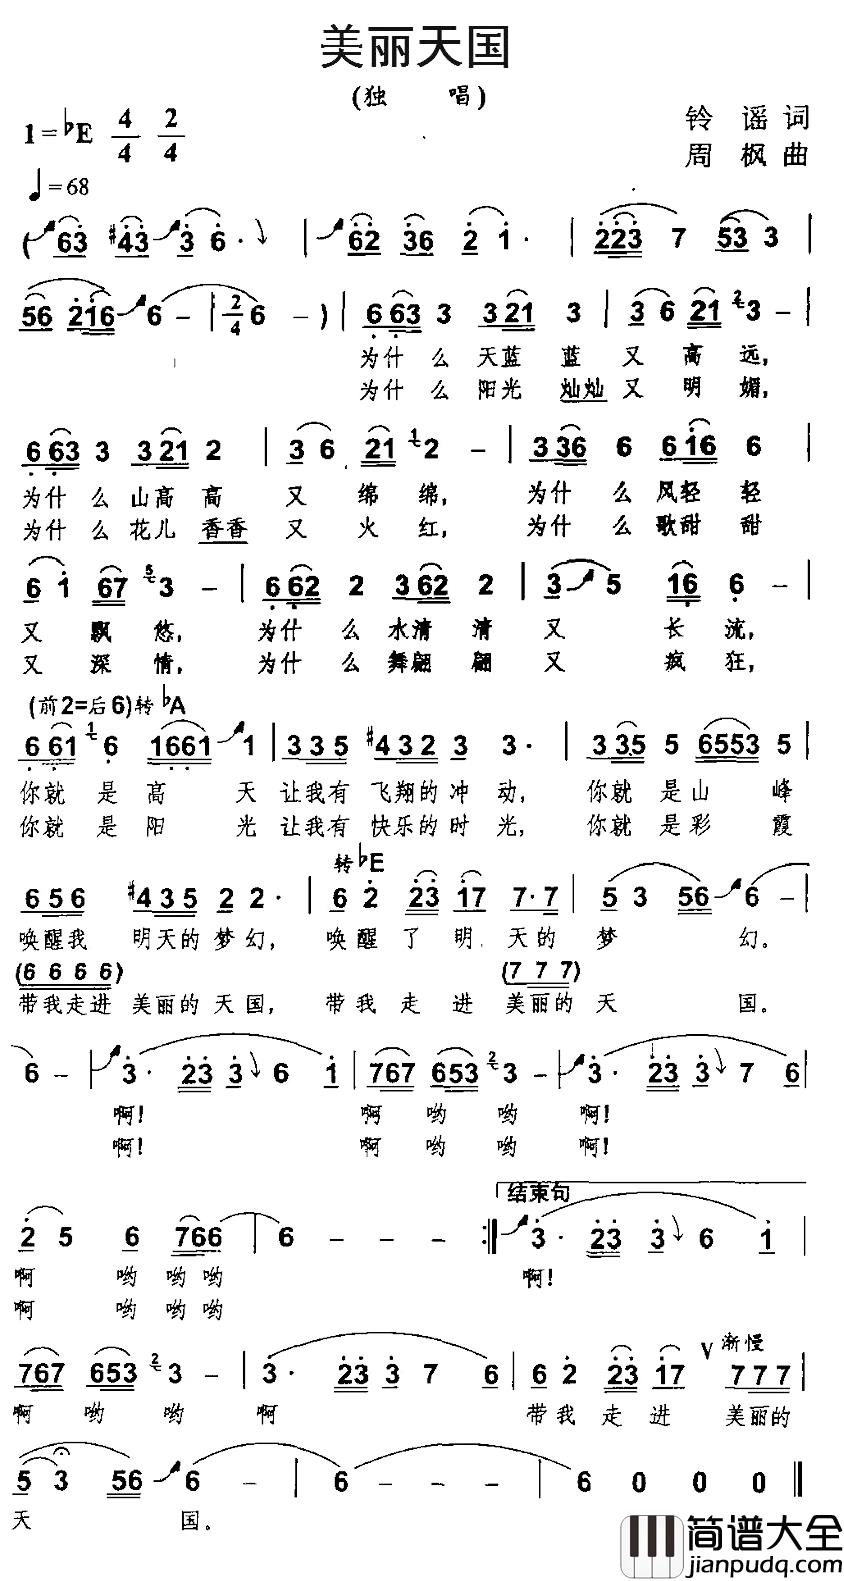 美丽天国
(独 唱)
1=♭E 4/4 2/4
铃谣词
周枫曲
♩=68
(63 #43 3 6· | 62 36 2 1· | 223 7 53 3 |
56 216 6 - | 2/4 6 - ) | 6 63 3 3 21 3 | 3 6 21 2 3 - |
为什么天蓝蓝又高远,
为什么阳光灿灿又明媚,
6 63 3 3 21 2 | 3 6 21 1 2 - | 3 36 6 6 16 6 |
为什么山高高又绵绵, 为什么风轻轻
为什么花儿香香又火红, 为什么歌甜甜
6 1 67 5 3 - | 6 62 2 3 62 2 | 3 5 16 6 - |
又飘悠, 为什么水清清又长流,
又深情, 为什么舞翩翩又疯狂,
(前2=后6)转♭A
6 61 1 6 1661 1 | 3 3 5 #4 3 2 3 3· | 3 35 5 6553 5 |
你就是高天让我有飞翔的冲动, 你就是山峰
你就是阳光让我有快乐的时光, 你就是彩霞
转♭E
6 5 6 #4 3 5 2 2· | 6 2 23 17 7·7 | 5 3 56 6 - |
唤醒我明天的梦幻, 唤醒了明天的梦幻。
(6 6 6 6) (7 7 7)
带我走进美丽的天国, 带我走进美丽的天国。
6 - | 3· 23 3 6 1 | 767 653 2 3 - | 3· 23 3 7 6 |
啊! 啊哟哟啊!
啊! 啊哟哟啊!
结束句
2 5 6 766 | 6 - - - :| 3· 23 3 6 1 |
啊哟哟哟 啊!
啊哟哟哟
渐慢
767 653 2 3 - | 3· 23 3 7 6 | 6 2 23 17 V 7 7 7 |
啊哟哟啊 带我走进美丽的
5 3 56 6 - | 6 - - - | 6 0 0 0 ‖
天国。
简谱大全
jianpudq.com